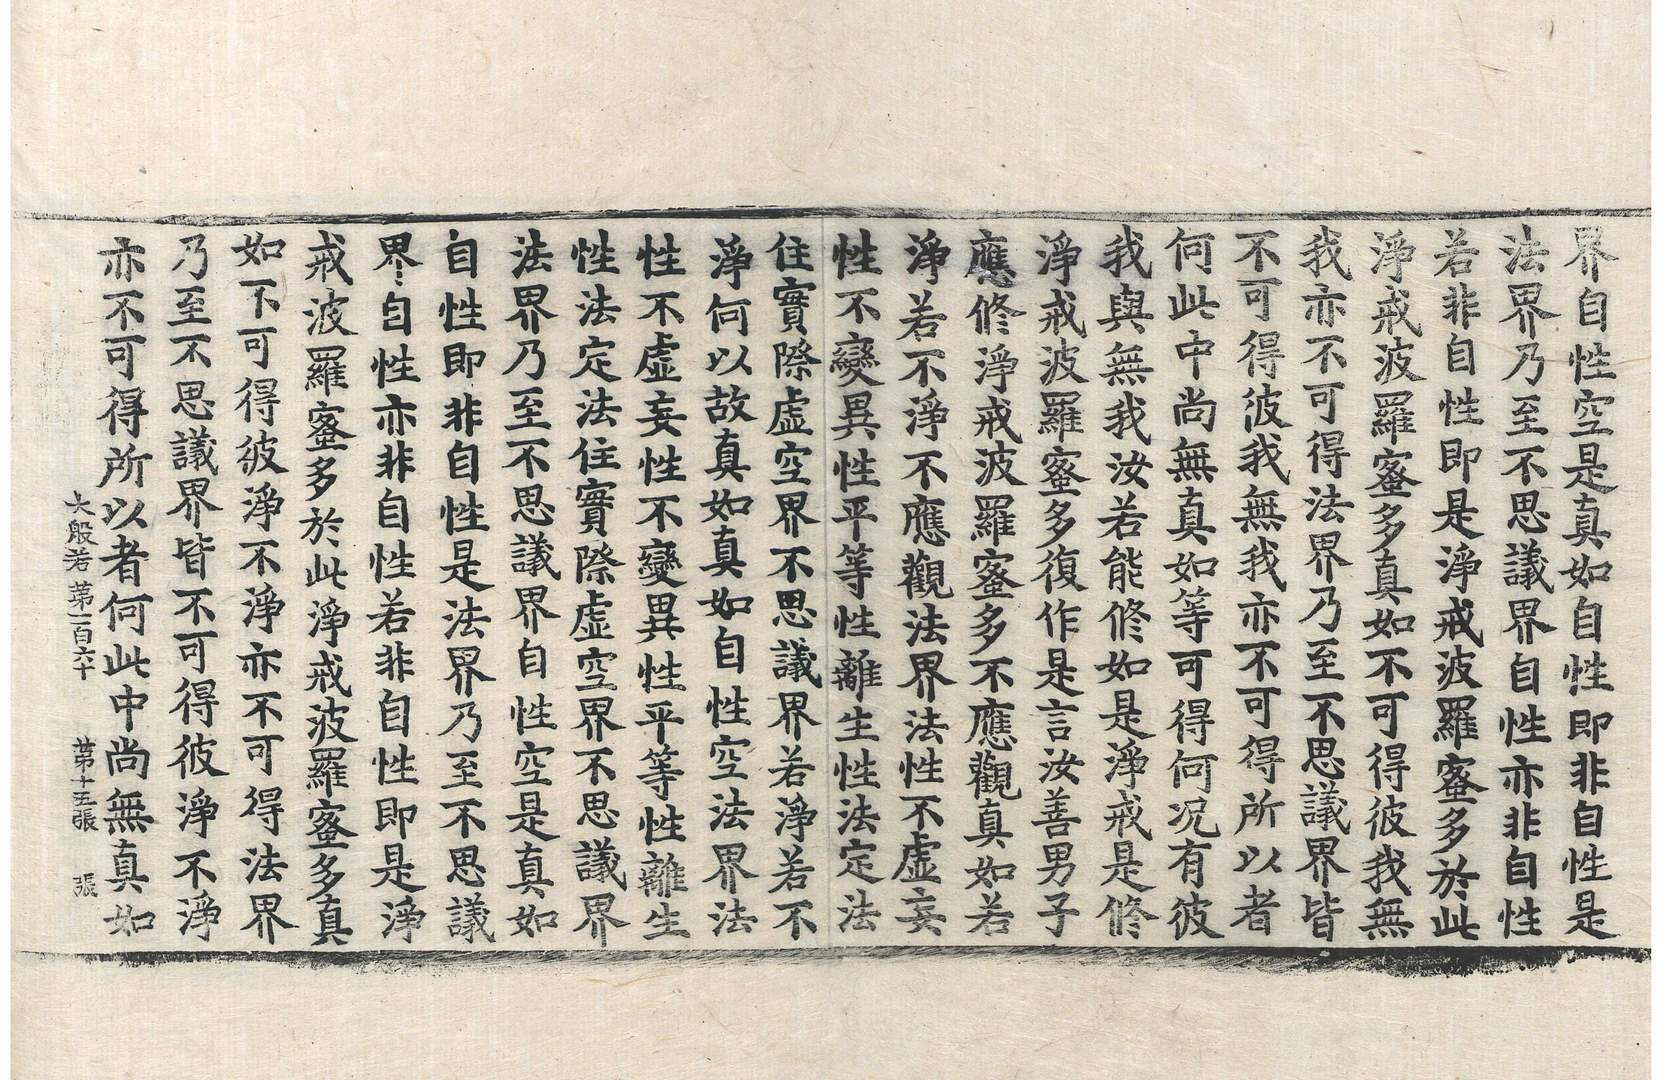 界自性空是真如自性即非自性是
法界乃至不思議界自性亦非自性
若非自性即是淨戒波羅蜜多於此
淨戒波羅蜜多真如不可得彼我無
我亦不可得法界乃至不思議界皆
不可得彼我無我亦不可得所以者
何此中尚無真如等可得何况有彼
我與無我汝若能修如是淨戒是修
淨戒波羅蜜多復作是言汝善男子
應修淨戒波羅蜜多不應觀真如若
淨若不淨不應觀法界法性不虛妄
性不變異性平等性離生性法定法
住實際虛空界不思議界若淨若不
淨何以故真如真如自性空法界法
性不虛妄性不變異性平等性離生
性法定法住實際虛空界不思議界
法界乃至不思議界自性空是真如
自性即非自性是法界乃至不思議
界自性亦非自性若非自性即是淨
戒波羅蜜多於此淨戒波羅蜜多真
如不可得彼淨不淨亦不可得法界
乃至不思議界皆不可得彼淨不淨
亦不可得所以者何此中尚無真如
大般若 苐一百六十 苐十五張 張